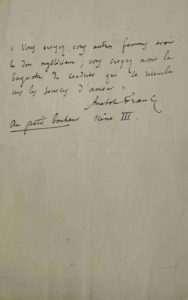 « Vous croyez vous autres femmes avoir
le don mystérieux ; vous croyez avoir la
baguette de coudrier qui se courbe
vers les sources d'amour »
Anatole France
Au petit bonheur Scène III.